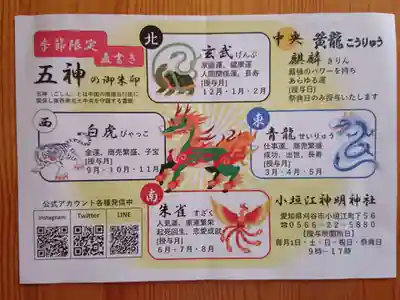 季節限定
直書き
五神の御朱印
五神（ごしん）とは中国の陰陽五行説に
関係し東西南北と中央を守護する霊獣
北
玄武 げんぶ
家庭運、健康運
人間関係運、長寿
[授与月]
12月・1月・2月
中央 黄龍 こうりゅう
麒麟 きりん
最強のパワーを持ち
あらゆる運
[授与日]
祭典日のみ授与いたします
西
白虎 びゃっこ
金運、商売繁盛、子宝
[授与月]
9月・10月・11月
東
青龍 せいりゅう
仕事運、商売繁盛
成功、出世、長寿
[授与月]
3月・4月・5月
公式アカウント各種発信中
Instagram
Twitter
LINE
南
朱雀 すざく
人気運、家運繁栄
起死回生、恋愛成就
[授与月]
6月・7月・8月
小垣江神明神社
愛知県刈谷市小垣江町下56
☎0566-22-5880
[授与所開所日]
毎月1日・土・日・祝日・祭典日
9時－17時